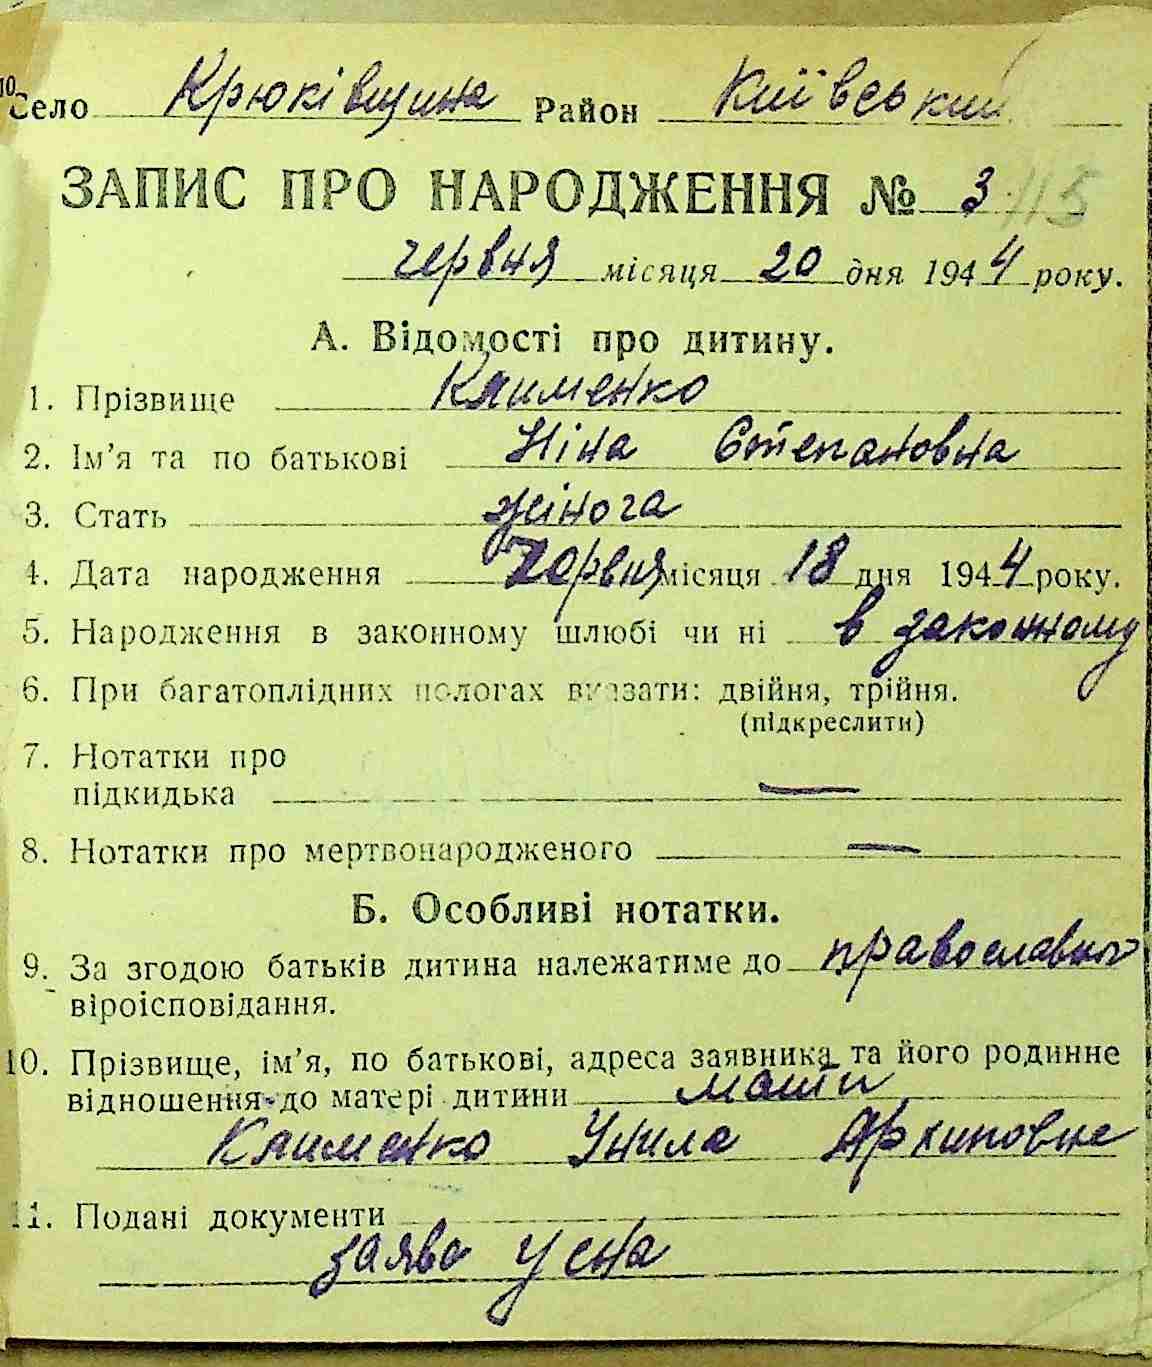 Село Крюківщина Район Київський
ЗАПИС ПРО НАРОДЖЕННЯ № 3 115
червня місяця 20 дня 1944 року.
А. Відомості про дитину.
1. Прізвище Клименко
2. Ім'я та по батькові Ніна Степановна
3. Стать жіноча
4. Дата народження червня місяця 18 дня 1944 року.
5. Народження в законному шлюбі чи ні в законному
6. При багатоплідних пологах вказати: двійня, трійня.
(підкреслити)
7. Нотатки про
підкидька —
8. Нотатки про мертвонародженого —
Б. Особливі нотатки.
9. За згодою батьків дитина належатиме до православного
віроісповідання.
10. Прізвище, ім'я, по батькові, адреса заявника та його родинне
відношення до матері дитини мати
Клименко Унила Архиповне
11. Подані документи
заява усна